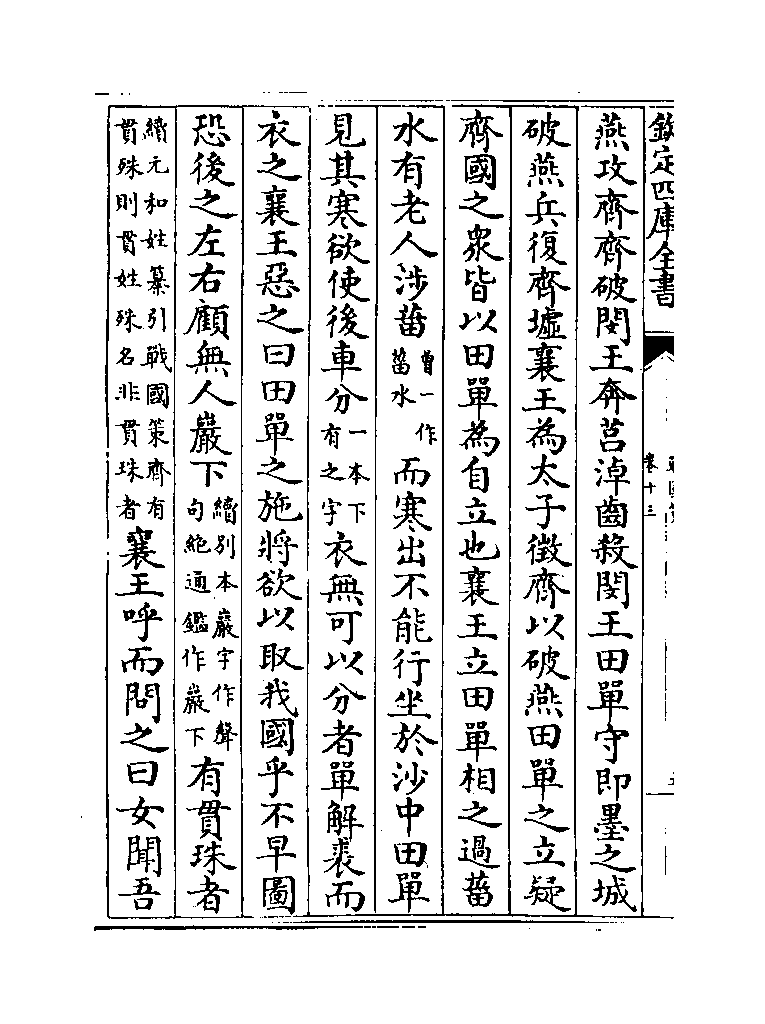 欽定四庫全書
卷十三
燕攻齊齊破閔王奔莒淖齒殺閔王田單守即墨之城
破燕兵復齊墟襄王為太子徵齊以破燕田單之立疑
齊國之衆皆以田單為自立也襄王立田單相之過菑
水有老人涉菑曾一作菑水而寒出不能行坐於沙中田單
見其寒欲使後車分一本下有之字衣無可以分者單解裘而
衣之襄王惡之曰田單之施將欲以取我國乎不早圖
恐後之左右顧無人巖下續别本巖字作聲句絶通鑑作巖下有貫珠者
續元和姓纂引戰國策齊有貫殊則貫姓殊名非貫珠者襄王呼而問之曰女聞吾